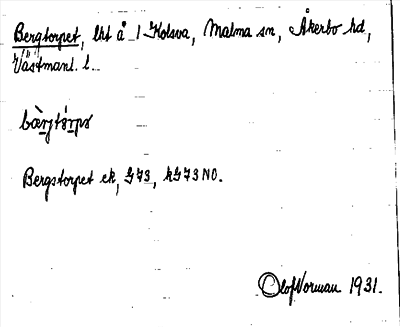 Bergtorpet, lht å 1 Kolsva, Malma sn, Åkerbo hd,
Västmanl. l.
bærjtòrpə
Bergstorpet ek, G73, kG73 NO.
Olof Norman 1931.